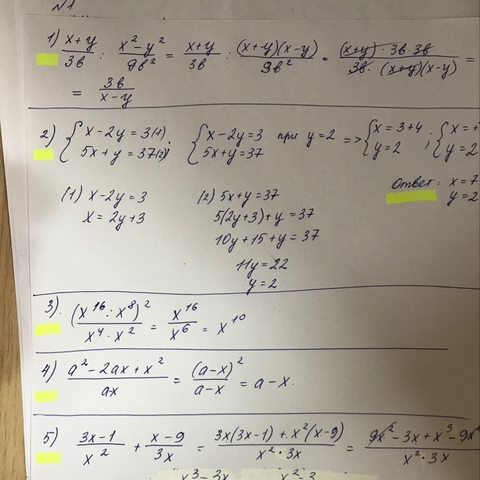 №1
1) (x+y)/(3в) : (x²-y²)/(9в²) = (x+y)/(3в) : ((x+y)(x-y))/(9в²) = ((x+y)·3в·3в)/(3в·(x+y)(x-y)) =
= 3в/(x-y)
2) { x-2y=3(1), 5x+y=37(2); { x-2y=3 5x+y=37 при y=2 => { x=3+4 y=2 ; { x= y=2
Ответ: x=7
y=2
(1) x-2y=3
x=2y+3
(2) 5x+y=37
5(2y+3)+y=37
10y+15+y=37
11y=22
y=2
3). (x¹⁶:x⁸)²/(x⁴·x²) = x¹⁶/x⁶ = x¹⁰
4) (a²-2ax+x²)/(ax) = (a-x)²/(a-x) = a-x.
5) (3x-1)/x² + (x-9)/(3x) = (3x(3x-1)+x²(x-9))/(x²·3x) = (9x²-3x+x³-9x²)/(x²·3x)
x³-3x x²-3